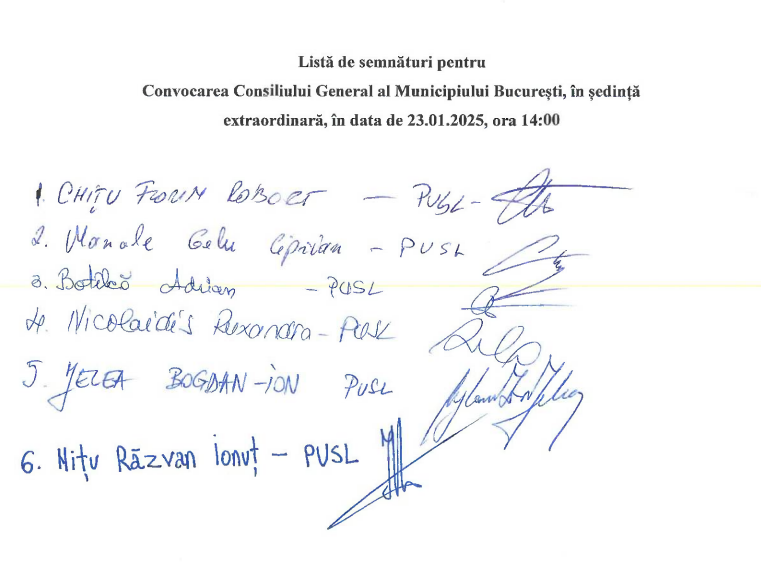 Listă de semnături pentru
Convocarea Consiliului General al Municipiului București, în ședință
extraordinară, în data de 23.01.2025, ora 14:00
1. CHIȚU FLORIN ROBERT — PUSL -
2. Manole Gelu Ciprian - PUSL
3. Adrian - PUSL
4. Nicolaidis Ruxandra - PUSL
5. JELEA BOGDAN-ION PUSL
6. Nițu Răzvan Ionuț - PUSL